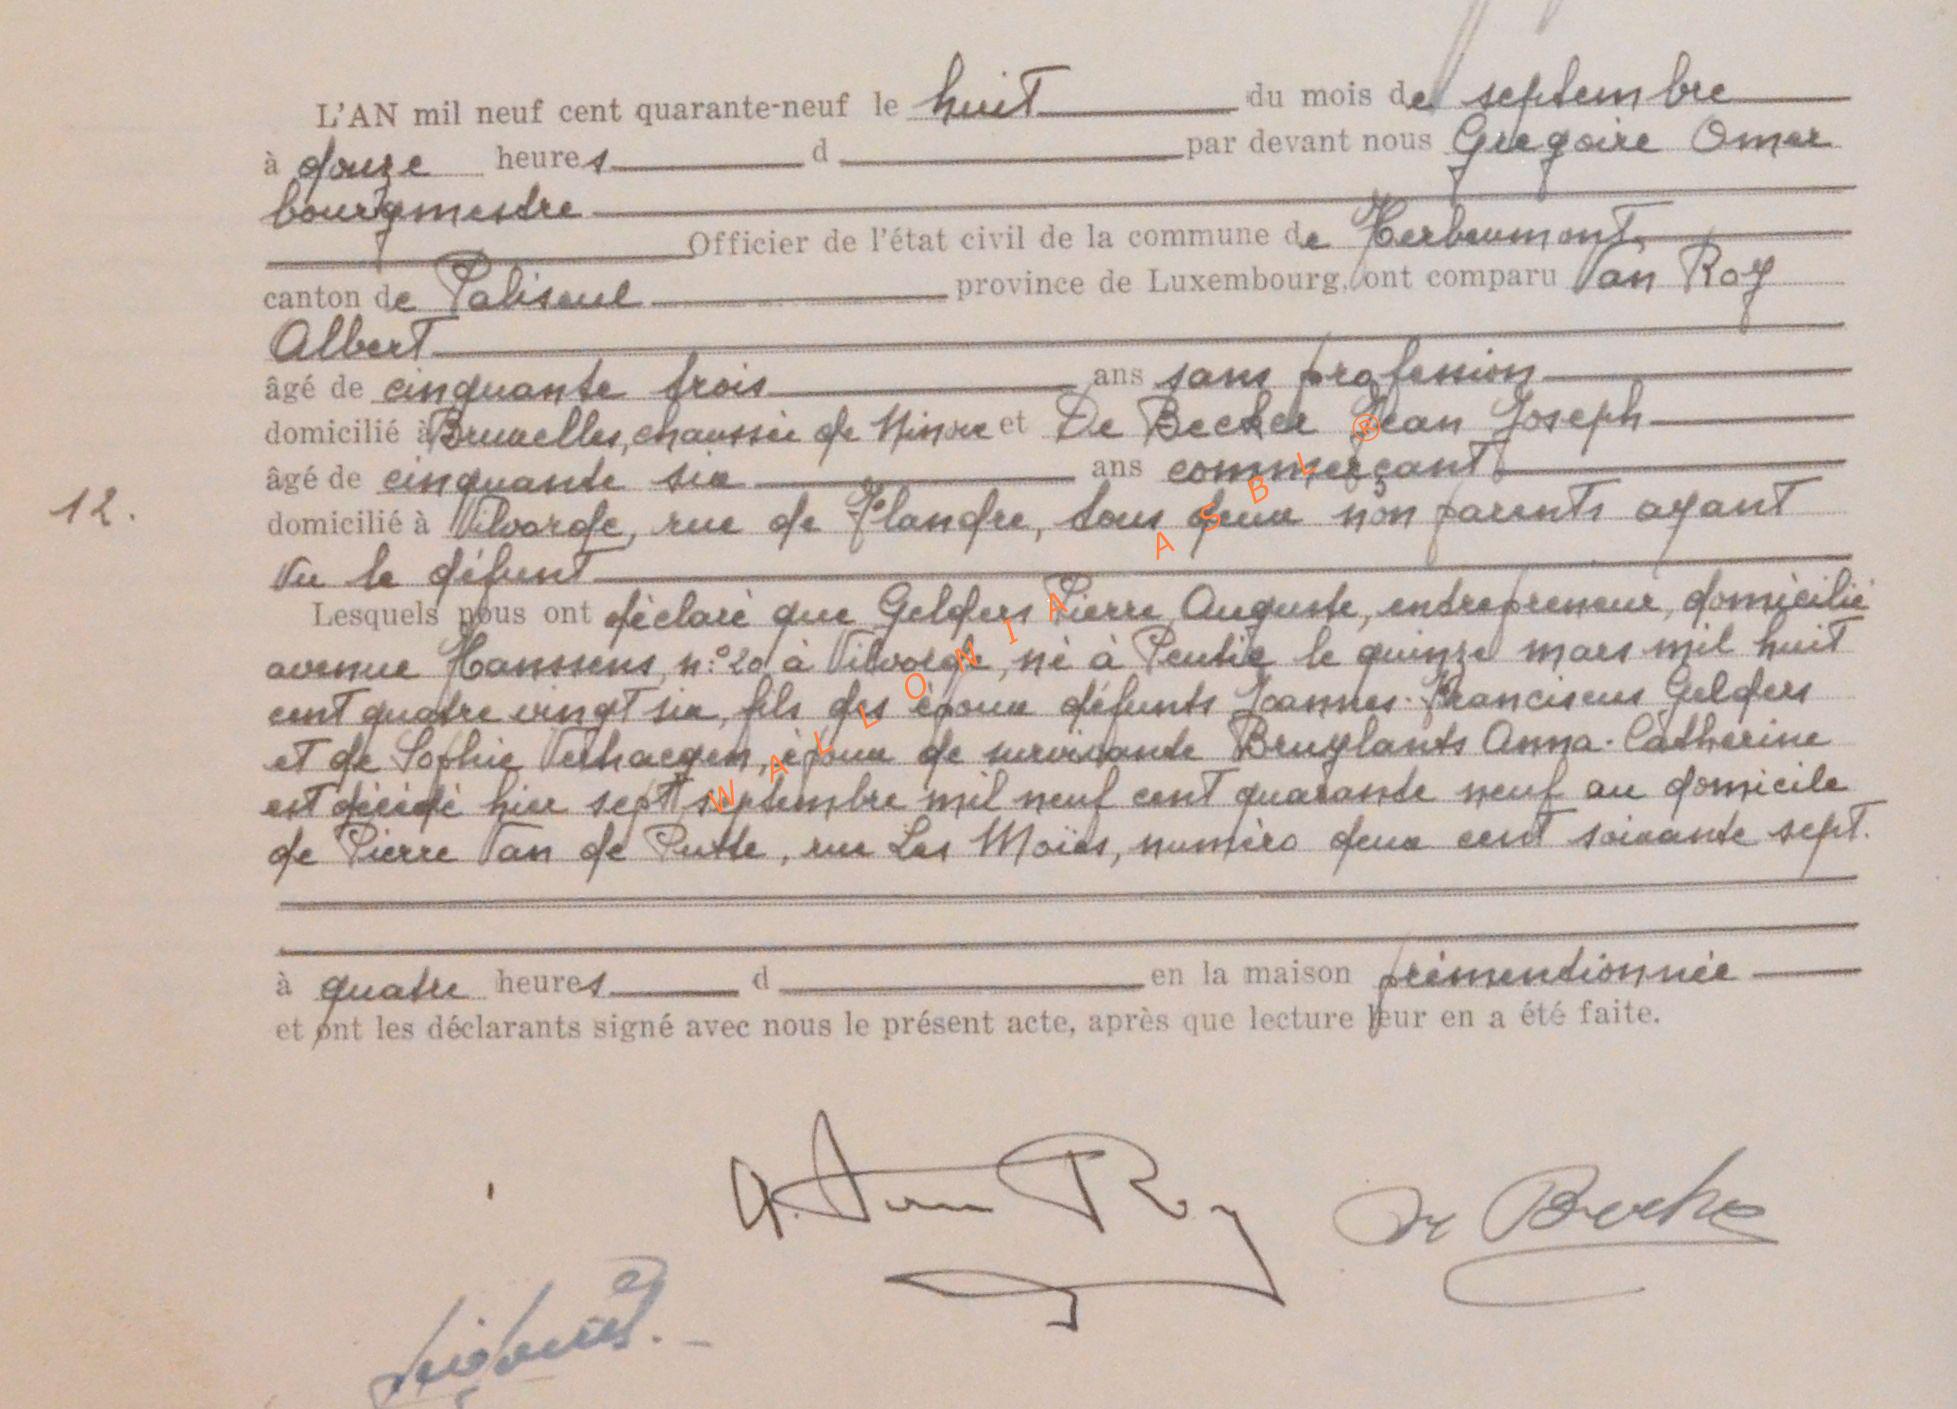 L'AN mil neuf cent quarante-neuf le huit du mois de septembre
à douze heures d par devant nous Gregoire Omer
bourgmestre
Officier de l'état civil de la commune de Herbeumont,
canton de Paliseul province de Luxembourg, ont comparu Van Roy
Albert
âgé de cinquante trois ans sans profession
domicilié à Bruxelles, chaussée de Ninove et De Becker Jean Joseph
âgé de cinquante six ans commerçant
12.
domicilié à Vilvorde, rue de Flandre, tous deux non parents ayant
vu le défunt
Lesquels nous ont déclaré que Gelders Pierre Auguste, entrepreneur, domicilié
avenue Hanssens, n:° 20 à Vilvorde, né à Peutie le quinze mars mil huit
cent quatre vingt six, fils des époux défunts Joannes-Franciscus Gelders
et de Sophie Verhaegen, époux de survivante Bruylants Anna-Catherine
est décédé hier sept septembre mil neuf cent quarante neuf au domicile
de Pierre Van de Putte, rue Les Moïes, numéro deux cent soixante sept.
à quatre heures d en la maison prémentionnée
et ont les déclarants signé avec nous le présent acte, après que lecture leur en a été faite.
A. Van Roy De Becker
WALLONIA ASBL ®